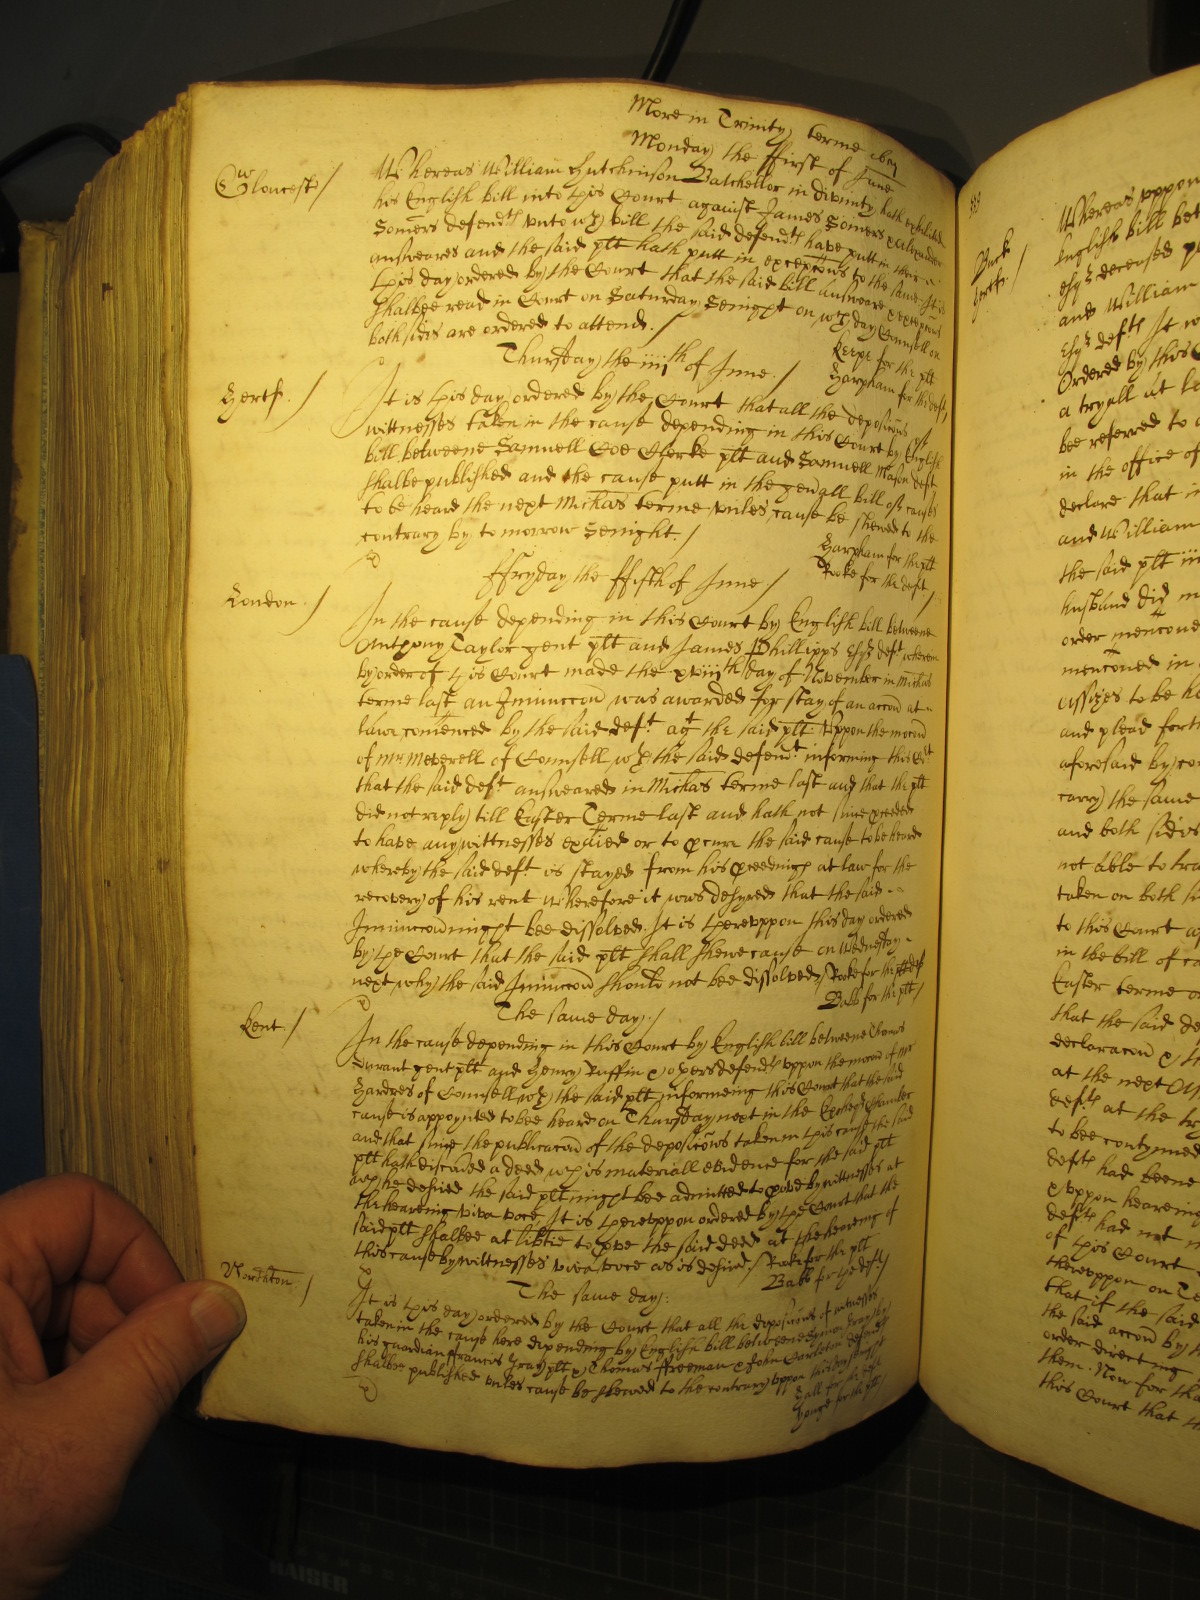 More in Trinity terme
Monday the ffirst of June
Glouceste /
Whereas William Hutchinson Batchellor in divinity hath exhibited
his English bill into this Court against James Somers & Alexander
Somers defend.ts unto w.ch bill the said defend.ts have putt in their
answeares and the said plt hath putt in excepcōns to the same It is
this day ordered by the Court that the said bill answeare & excepcōns
shalbee read in Court on Saturday Senight on w.ch day Counsell on
both sides are ordered to attend. /
keepe for the plt
Harpham for the deft.
Thursday the iiij.th of June. /
Hertf. /
It is this day ordered by the Court that all the deposicōns of
wittnesses taken in the cause depending in this Court by English
bill betweene Samuell Coe Clerke plt and Samuell Mason deft
shalbe published and the cause putt in the gen'all bill of causes
to be heard the next Michas terme unles cause be shewed to the
contrary by to morrow Senight. /
Harpham for the plt
Rooke for the deft.
ffryday the ffifth of June /
London. /
In the cause depending in this Court by English bill betweene
Anthony Taylor gent plt and James Phillipps Esq.r def.t wherein
by order of this Court made the xviij.th day of November in Michas
terme last an Iniunccōn was awarded for stay of an accōn at
lawe comenced by the said def.t ag.t the said plt. Uppon the mocōn
of m.r Meverell of Counsell w.th the said defend.t informing this Co.rt
that the said def.t answeared in Michas terme last and that the plt
did not reply till Easter Terme last and hath not since p'ceeded
to have any wittnesses exāied or to p'cure the said cause to be heard
whereby the said def.t is stayed from his p'ceedings at law for the
recovery of his rent Wherefore it was desyred that the said
Iniunccōn might bee dissolved. It is thereuppon this day ordered
by the Court that the said plt shall shewe cause on Wednesday
next why the said Iniunccōn should not bee dissolved / Rooke for the deft
Babb for the plt /
The same day. /
Kent. /
In the cause depending in this Court by English bill betweene Thomas
Durant gent plt and Henry Ruffin & others defend.ts uppon the mocōn of m.r
Hardres of Counsell w.th the said plt informeing this Court that the said
cause is appoynted to bee heard on Thursday next in the Exchequer chamber
and that since the publicacōn of the deposicōns taken in this cause the said
plt hath discovered a deed w.ch is materiall evidence for the said plt
w.ch he desired the said plt might bee admitted to p'ove by wittnesses at
the hearing viva voce. It is thereuppon ordered by the Court that the
said plt shalbee at lib'tie to p've the said deed at the heareing of
this cause by wittnesses viva voce as is desired. / Rooke for the plt
Babb for the def.ts /
The same day:
Northton. /
It is this day ordered by the Court that all the deposicōns of wittnesses
taken in the cause here depending by English bill betweene
his guardian ffrancis Gray plt & Thomas ffreeman & John Carleton defend.ts
shalbee published unles cause be shewed to the contrary uppon this day senight
Hall for the deft
for the plt
Buck
Whereas uppon
English bill bet
Esq.r deceased
and William
Esq.r def.ts It w
Ordered by this C
a tryall at la
bee referred to
in the office of
declare that i
and William
the said plt
husband did m
order mencōne
mencōned in
Assizes to be h
and plead forth
aforesaid by co
carry the same
and both sides
not able to tra
taken on both si
to this Court
in the bill of ca
Easter terme
that the said de
declaracōn & th
at the next Ass
def.ts at the tr
to bee contynued
def.ts had beene
& uppon heareing
def.ts had not
of this Court
thereuppon on
that if the said
the said accōn by
order directing
them. Now for tha
this Court that